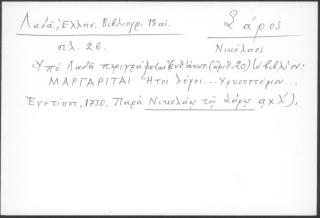 Λαδᾶ, Ἑλλην. Βιβλιογρ. 18 αἰ. Σάρος
σελ. 26. Νικόλαος
Ὑπό Λαδᾶ περιγράφεται (ἀριθ. 20) βιβλίον:
ΜΑΡΓΑΡΙΤΑΙ Ἤτοι λόγοι... Χρυσοστόμου...
Ἐνετίησι, 1730. Παρά Νικολάῳ τῷ Σάρῳ αχλʹ).